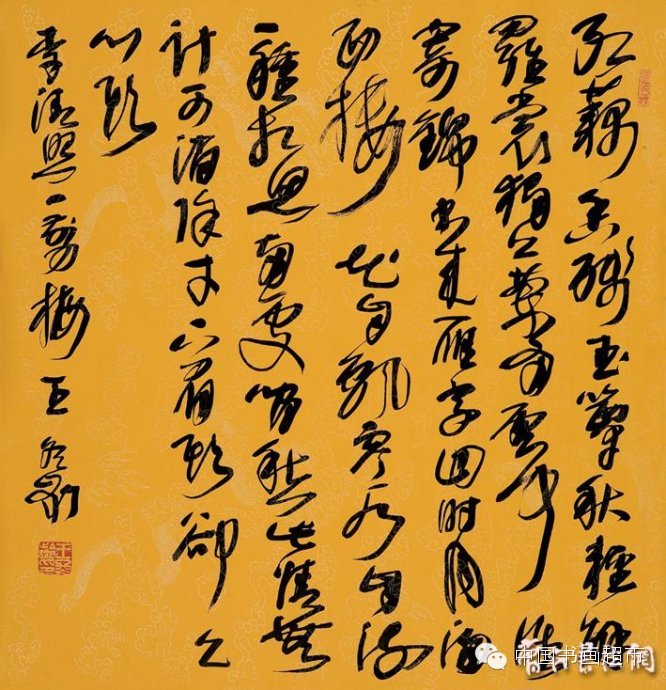 红藕香残玉簟秋轻解
羅裳獨上蘭舟雲中誰
寄錦书来雁字回时月满
西楼 花自飘零水自流
一種相思两處闲愁此情無
计可消除才下眉头卻上
心头
李清照一剪梅 王
中国书画超市